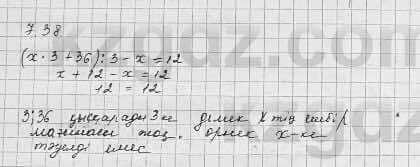 7.38
(x · 3 + 36) : 3 - x = 12
x + 12 - x = 12
12 = 12
3; 36 қысқарады 3 ке демек x тің ешбір
мағынасы жоқ. өрнек x-ке
тәуелді емес